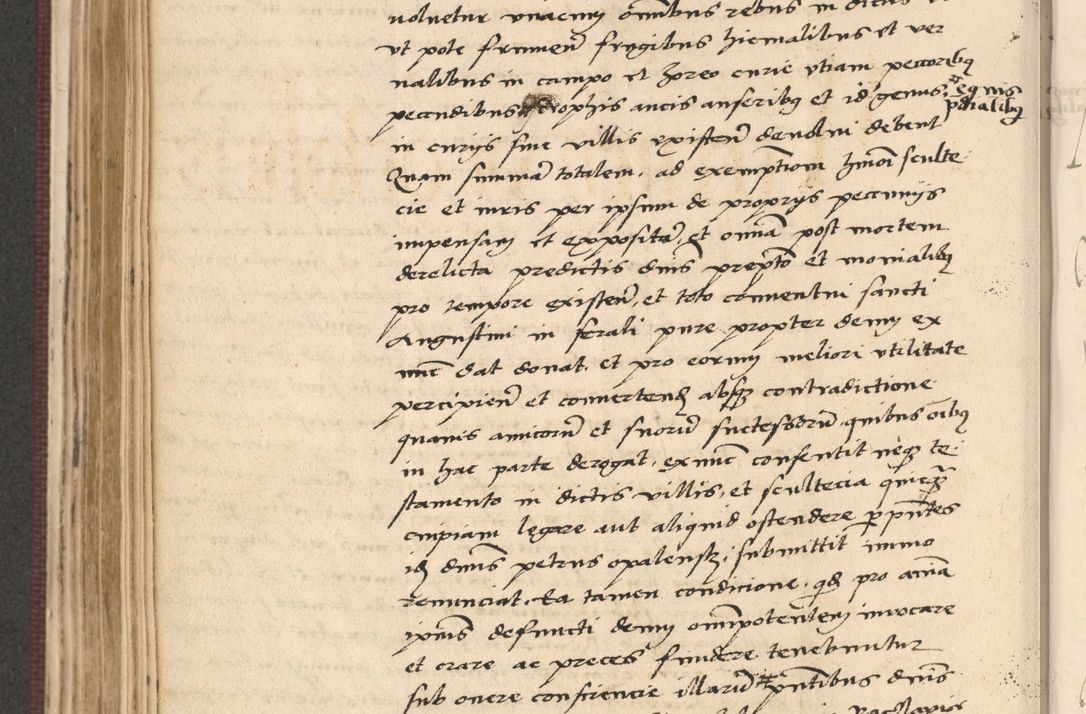 voluetur vnacum omnibus rebus in dictis
vt pote frumen frugibus hiemalibus et ver
nalibus in campo et horeo curie etiam peccoribus
peccudibus scrophis aucis anseribus et id genus # equis
poledralibus
in curijs siue villis existen deuolui debent
Quam summam totalem, ad exemptionem hmoi sculte
cie et iuris per ipsum de proprijs peccunijs
impensam et expositam, et omnia post mortem
derelicta predictis dnis preposito et monialibus
pro tempore existen, et toto conuentui sancti
Augustini in ferali pure propter deum ex
nunc dat donat, et pro eorum meliori vtilitate
percipien et conuertend absque contradictione
quauis amicorum et suorum successorum, quibus oibus
in hac parte derogat, exnunc consentit neque te
stamento in dictis villis, et scultecia quicquam
cuipiam legare aut aliquid ostendere per pntes
id dnus petrus opalensky, submittit immo
renunciat, Ea tamen condicione, quod pro anima
ipsius defuncti deum omnipotentem inuocare
et orare ac preces fundere tenebuntur
sub onere consciencie illarum # pntibus dnis